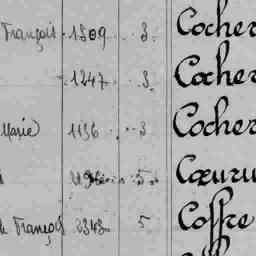 François 1509 3 Cocher
1247 3 Cocher
Marie 1156 3 Cocher
5 Cœuru
François 2343 5 Coffre